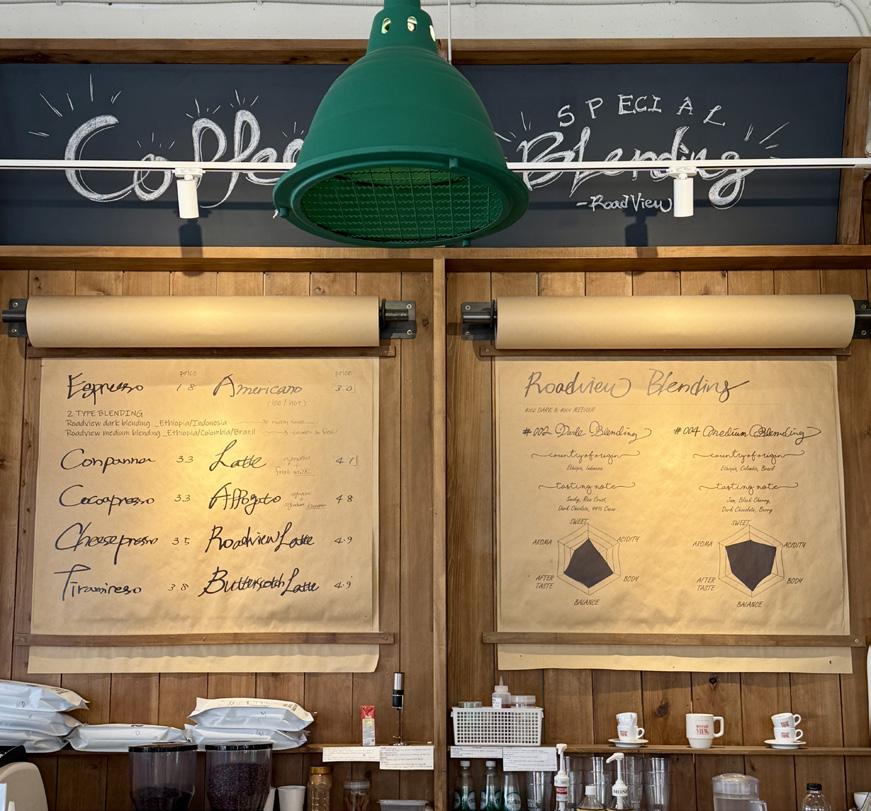 Coffee
SPECIAL
Blending
-RoadView
price
price
Espresso 1.8 Americano 3.0
(ice/hot)
2 TYPE BLENDING
Roadview dark blending _Ethiopia/Indonesia
Roadview medium blending _Ethiopia/Colombia/Brazil
Conpanna 3.3 Latte 4.1
Cocopresso 3.3 Affogato 4.8
Cheesepresso 3.5 Roadview Latte 4.9
Tiramisso 3.8 Butterscotch Latte 4.9
Roadview Blending
#002 DARK & #004 MEDIUM
#002 Dark Blending
#004 Medium Blending
country of origin
Ethiopia, Indonesia
country of origin
Ethiopia, Colombia, Brazil
tasting note
Dark Chocolate,
tasting note
Dark Chocolate,
SWEET
ACIDITY
BODY
BALANCE
AFTER TASTE
AROMA
SWEET
ACIDITY
BODY
BALANCE
AFTER TASTE
AROMA